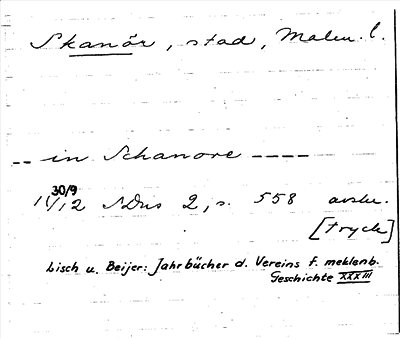 Skanör, stad, Malm. l.
-- in Schanore ----
30/9
11/12 SDns 2, s. 558 avskr.
[tryck]
Lisch u. Beijer: Jahrbücher d. Vereins f. meklenb.
Geschichte XXXIII